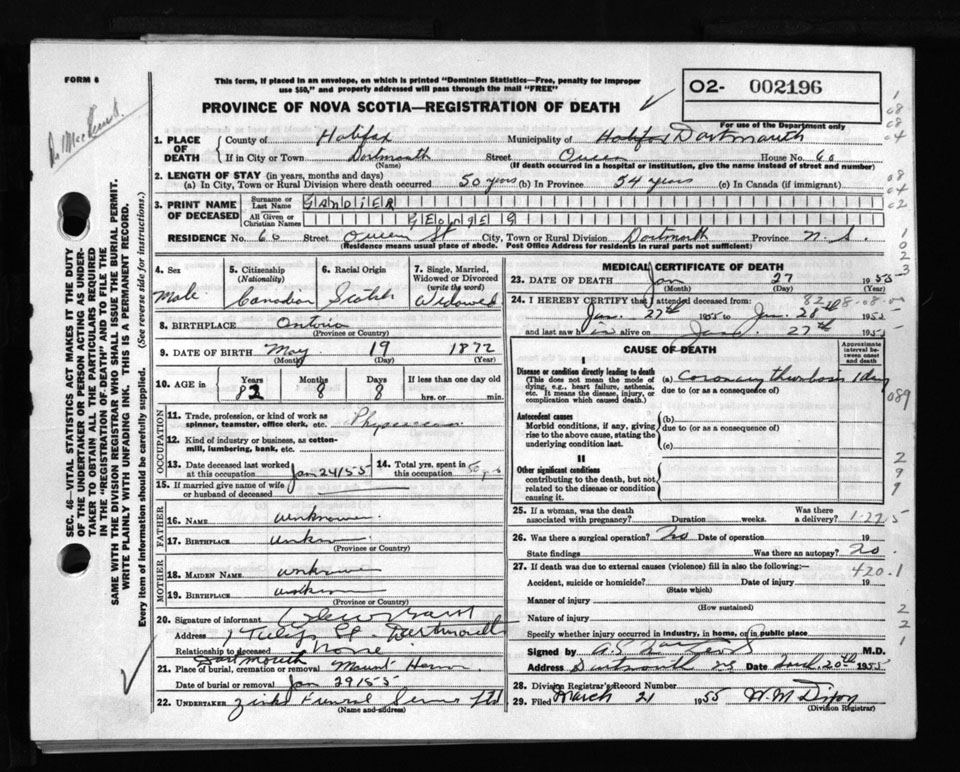 FORM 6
This form, if placed in an envelope, on which is printed "Dominion Statistics—Free, penalty for improper
use $50," and properly addressed will pass through the mail "FREE"
PROVINCE OF NOVA SCOTIA—REGISTRATION OF DEATH
O2- 002196
For use of the Department only
SEC. 46—VITAL STATISTICS ACT MAKES IT THE DUTY
OF THE UNDERTAKER OR PERSON ACTING AS UNDER-
TAKER TO OBTAIN ALL THE PARTICULARS REQUIRED
IN THE "REGISTRATION OF DEATH" AND TO FILE THE
SAME WITH THE DIVISION REGISTRAR WHO SHALL ISSUE THE BURIAL PERMIT.
WRITE PLAINLY WITH UNFADING INK. THIS IS A PERMANENT RECORD.
Every item of information should be carefully supplied. (See reverse side for instructions.)
1. PLACE OF DEATH
County of Halifax Municipality of Halifax Dartmouth
If in City or Town Dartmouth Street Queen House No. 60
(Name) (If death occurred in a hospital or institution, give the name instead of street and number)
2. LENGTH OF STAY (in years, months and days)
(a) In City, Town or Rural Division where death occurred 50 years (b) In Province 54 years (c) In Canada (if immigrant)
3. PRINT NAME OF DECEASED
Surname or Last Name GANDIER
All Given or Christian Names GEORGE G
RESIDENCE No. 60 Street Queen St City, Town or Rural Division Dartmouth Province N. S.
(Residence means usual place of abode. Post Office Address for residents in rural parts not sufficient)
4. Sex Male
5. Citizenship (Nationality) Canadian
6. Racial Origin Scotch
7. Single, Married, Widowed or Divorced (write the word) Widowed
8. BIRTHPLACE Ontario
(Province or Country)
9. DATE OF BIRTH May 19 1872
(Month) (Day) (Year)
10. AGE in Years 82 Months 8 Days 8 If less than one day old hrs. or min.
OCCUPATION
11. Trade, profession, or kind of work as spinner, teamster, office clerk, etc. Physician
12. Kind of industry or business, as cotton-mill, lumbering, bank, etc.
13. Date deceased last worked at this occupation Jan 24/55
14. Total yrs. spent in this occupation
15. If married give name of wife or husband of deceased
FATHER
16. NAME unknown
17. BIRTHPLACE unknown
(Province or Country)
MOTHER
18. MAIDEN NAME unknown
19. BIRTHPLACE unknown
(Province or Country)
20. Signature of informant
Address 1 Tulip St Dartmouth
Relationship to deceased None
21. Place of burial, cremation or removal Dartmouth Mount Hermon
Date of burial or removal Jan 29/55
22. UNDERTAKER Zinks Funeral Service Ltd
(Name and address)
MEDICAL CERTIFICATE OF DEATH
23. DATE OF DEATH Jan 27 1955
(Month) (Day)
24. I HEREBY CERTIFY that I attended deceased from:
82-8-08-00
Jan. 27th 1955 to Jan. 28th 1955
and last saw him alive on Jan 27th 1955
CAUSE OF DEATH
Approximate interval between onset and death
I
Disease or condition directly leading to death
(This does not mean the mode of dying, e.g., heart failure, asthenia, etc. It means the disease, injury, or complication which caused death.)
(a) Coronary thrombosis 1 day
due to (or as a consequence of)
089
Antecedent causes
Morbid conditions, if any, giving rise to the above cause, stating the underlying condition last.
(b)
due to (or as a consequence of)
(c)
II
Other significant conditions
contributing to the death, but not related to the disease or condition causing it.
25. If a woman, was the death associated with pregnancy? Duration weeks. Was there a delivery?
1-27-5
26. Was there a surgical operation? No Date of operation 19
State findings Was there an autopsy? No.
27. If death was due to external causes (violence) fill in also the following:—
420.1
Accident, suicide or homicide? Date of injury 19
(State which)
Manner of injury
(How sustained)
Nature of injury
Specify whether injury occurred in industry, in home, or in public place
Signed by M.D.
Address Dartmouth NS Date 20th 1955
28. Division Registrar's Record Number
29. Filed March 21 1955 W. M. Dixon
(Division Registrar)